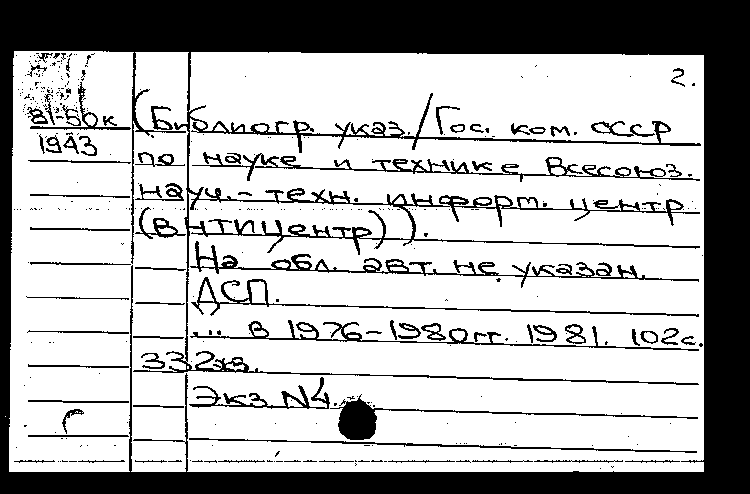 2.
81-50к (Библиогр. указ./Гос. ком. СССР
1943 по науке и технике, Всесоюз.
науч.-техн. информ. центр
(ВНТИЦентр)).
На обл. авт. не указан.
ДСП.
... в 1976-1980гг. 1981. 102с.
332экз.
Экз. N4.